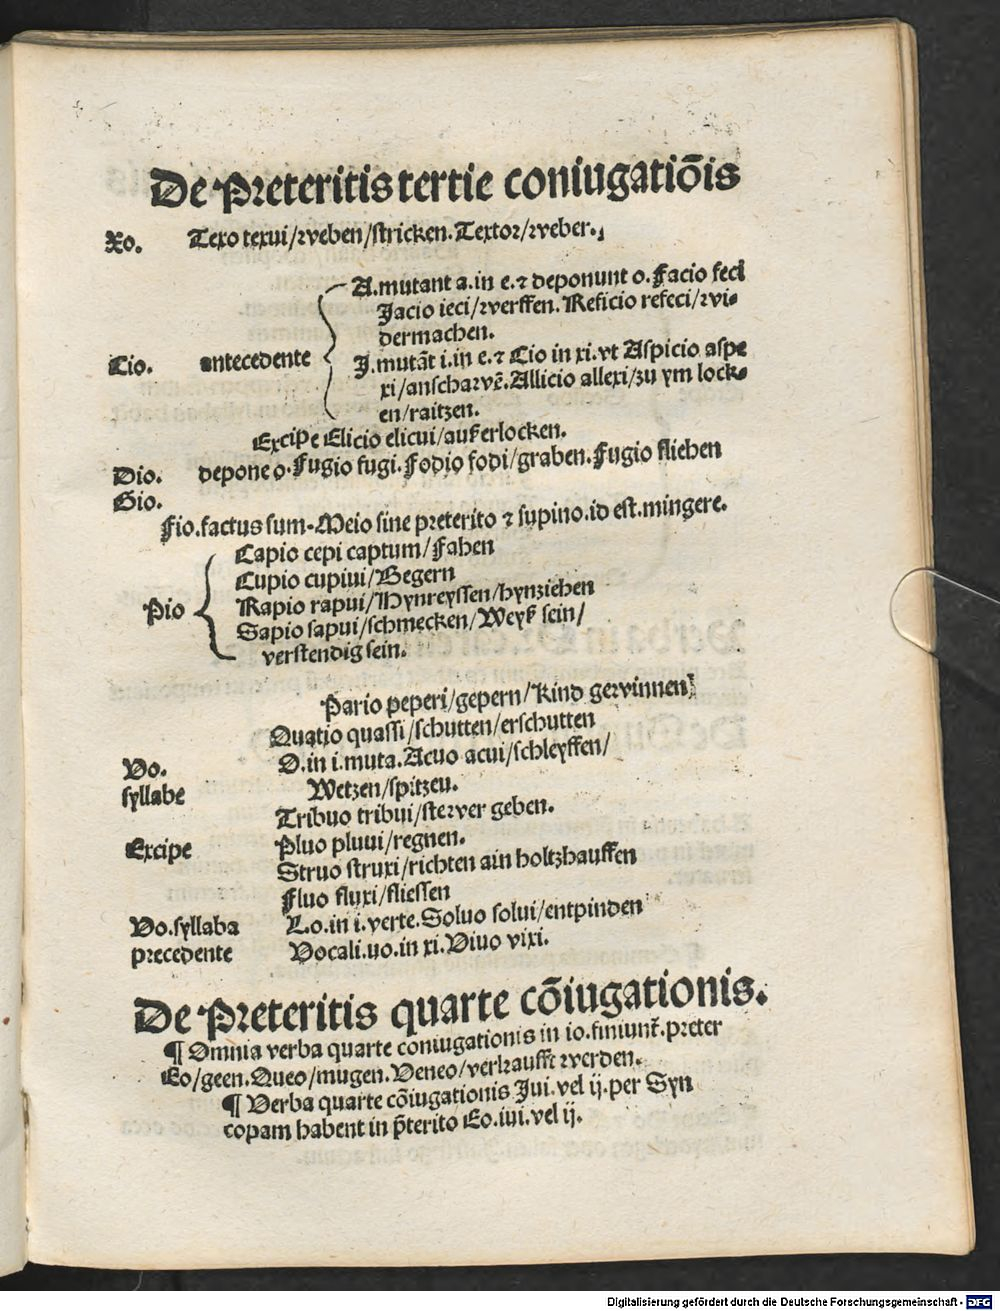 De Preteritis tertie coniugatiōis
Xo. Texo texui/weben/stricken. Textor/weber.
A.mutant a.in e.⁊ deponunt o.Facio feci
Jacio ieci/werffen. Reficio refeci/wi-
dermachen.
Cio. antecedente
J.mutāt i.in e.⁊ Cio in xi.vt Aspicio aspe
xi/anschawē.Allicio allexi/zu ym lock-
en/raitzen.
Excipe Elicio elicui/außerlocken.
Dio. depone o.Fugio fugi.Fodio fodi/graben.Fugio fliehen
Gio.
Fio.factus sum.Meio sine preterito ⁊ supino.id est.mingere.
Capio cepi captum/Fahen
Cupio cupiui/Begern
Pio Rapio rapui/Hynreyssen/hynziehen
Sapio sapui/schmecken/Weyß sein/
verstendig sein.
Pario peperi/gepern/Kind gewinnen
Quatio quassi/schutten/erschutten
Vo. O.in i.muta.Acuo acui/schleyffen/
syllabe Wetzen/spitzen.
Tribuo tribui/stewer geben.
Excipe Pluo pluui/regnen.
Struo struxi/richten ain holtzhauffen
Fluo fluxi/fliessen
Vo.syllaba L.o.in i.verte.Soluo solui/entpinden
precedente Vocali.uo.in xi.Viuo vixi.
De Preteritis quarte cōiugationis.
¶ Omnia verba quarte coniugationis in io.finiunt̄.preter
Eo/geen.Queo/mugen.Veneo/verkaufft werden.
¶ Verba quarte cōiugationis Jui.vel ij.per Syn
copam habent in p̄terito Eo.iui.vel ij.
Digitalisierung gefördert durch die Deutsche Forschungsgemeinschaft - DFG